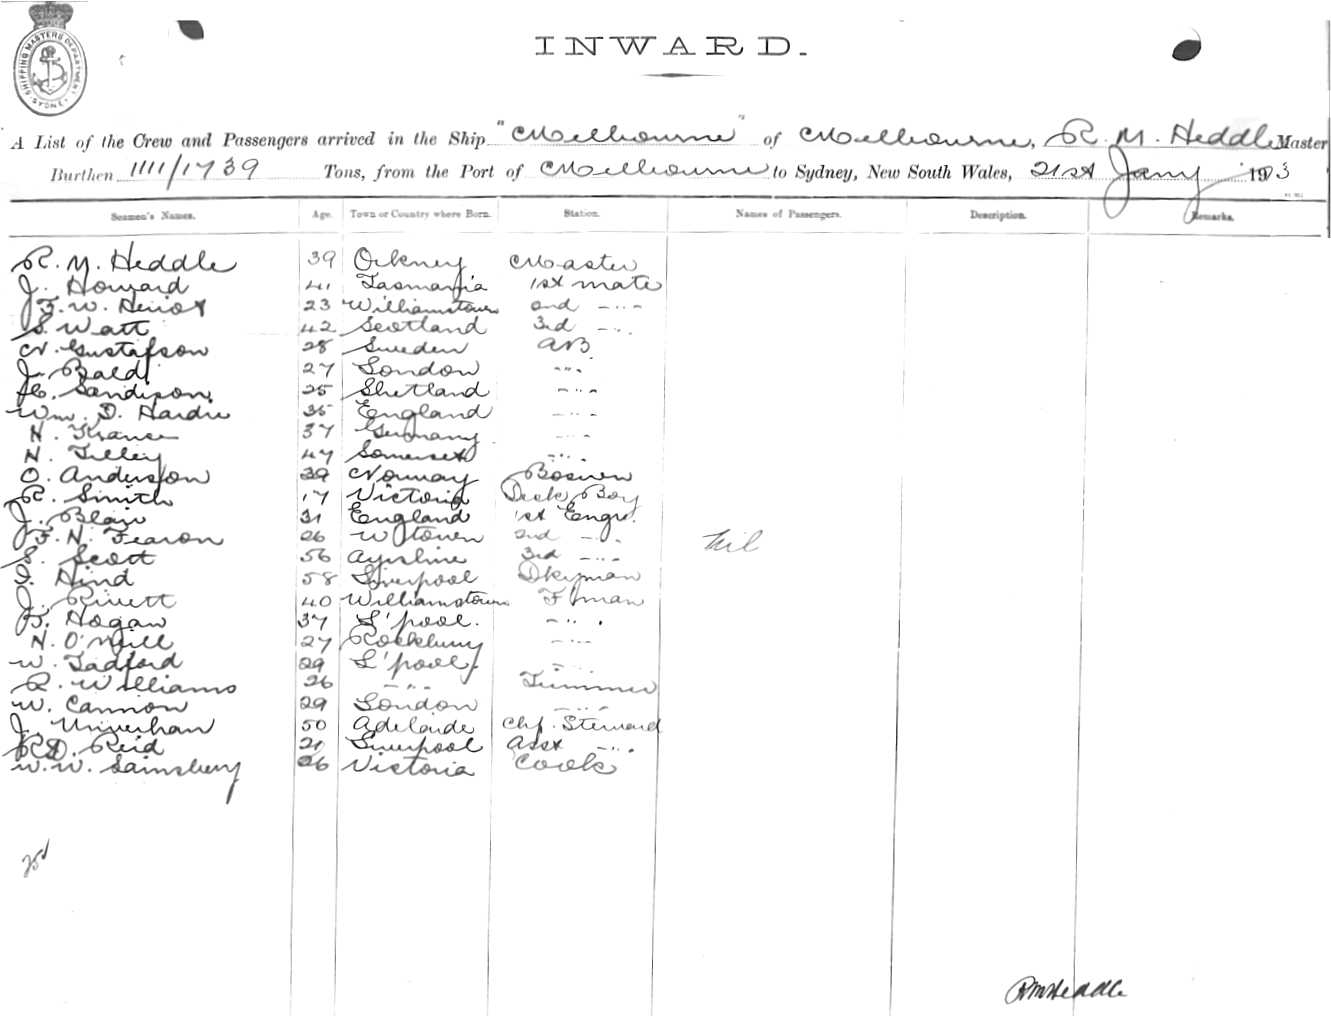 SHIPPING MASTERS DEPARTMENT SYDNEY
INWARD.
A List of the Crew and Passengers arrived in the Ship "Melbourne" of Melbourne, R. M. Heddle Master
Burthen 1111/1739 Tons, from the Port of Melbourne to Sydney, New South Wales, 21st Jany 1903
Seamen's Names. Age. Town or Country where Born. Station. Names of Passengers. Description. Remarks.
R. M. Heddle 39 Orkney Master
J. Howard 41 Tasmania 1st mate
F. W. Heriot 23 Williamstown 2nd -..-
S. Watt 42 Scotland 3rd -..
N. Gustafson 28 Sweden AB
J. Bald 27 London -..-
Sandison 25 Shetland -..-
Wm. D. Hardie 35 England -..-
N. Krause 37 Germany -..-
N. Tilley 47 Somerset -..-
O. Anderson 39 Norway Bosun
R. Smith 17 Victoria Deck Boy
J. Blair 31 England 1st Engr.
F. N. Fearon 26 W town 2nd -..
S. Scott 56 Ayrshire 3rd -..-
Nil
Hind 58 Liverpool Dkyman
J. Rivett 40 Williamstown F man
Hogan 37 L'pool. -..
N. O'Neill 27 Rockbury -..-
W. Tadford 29 L'pool -..
R. Williams 26 -..- Trimmer
W. Cannon 29 London -..-
J. Univerhan 50 Adelaide Chf. Steward
R. D. Reid 21 Liverpool Asst -..
W. W. Sainsbury 26 Victoria Cook
RMHeddle